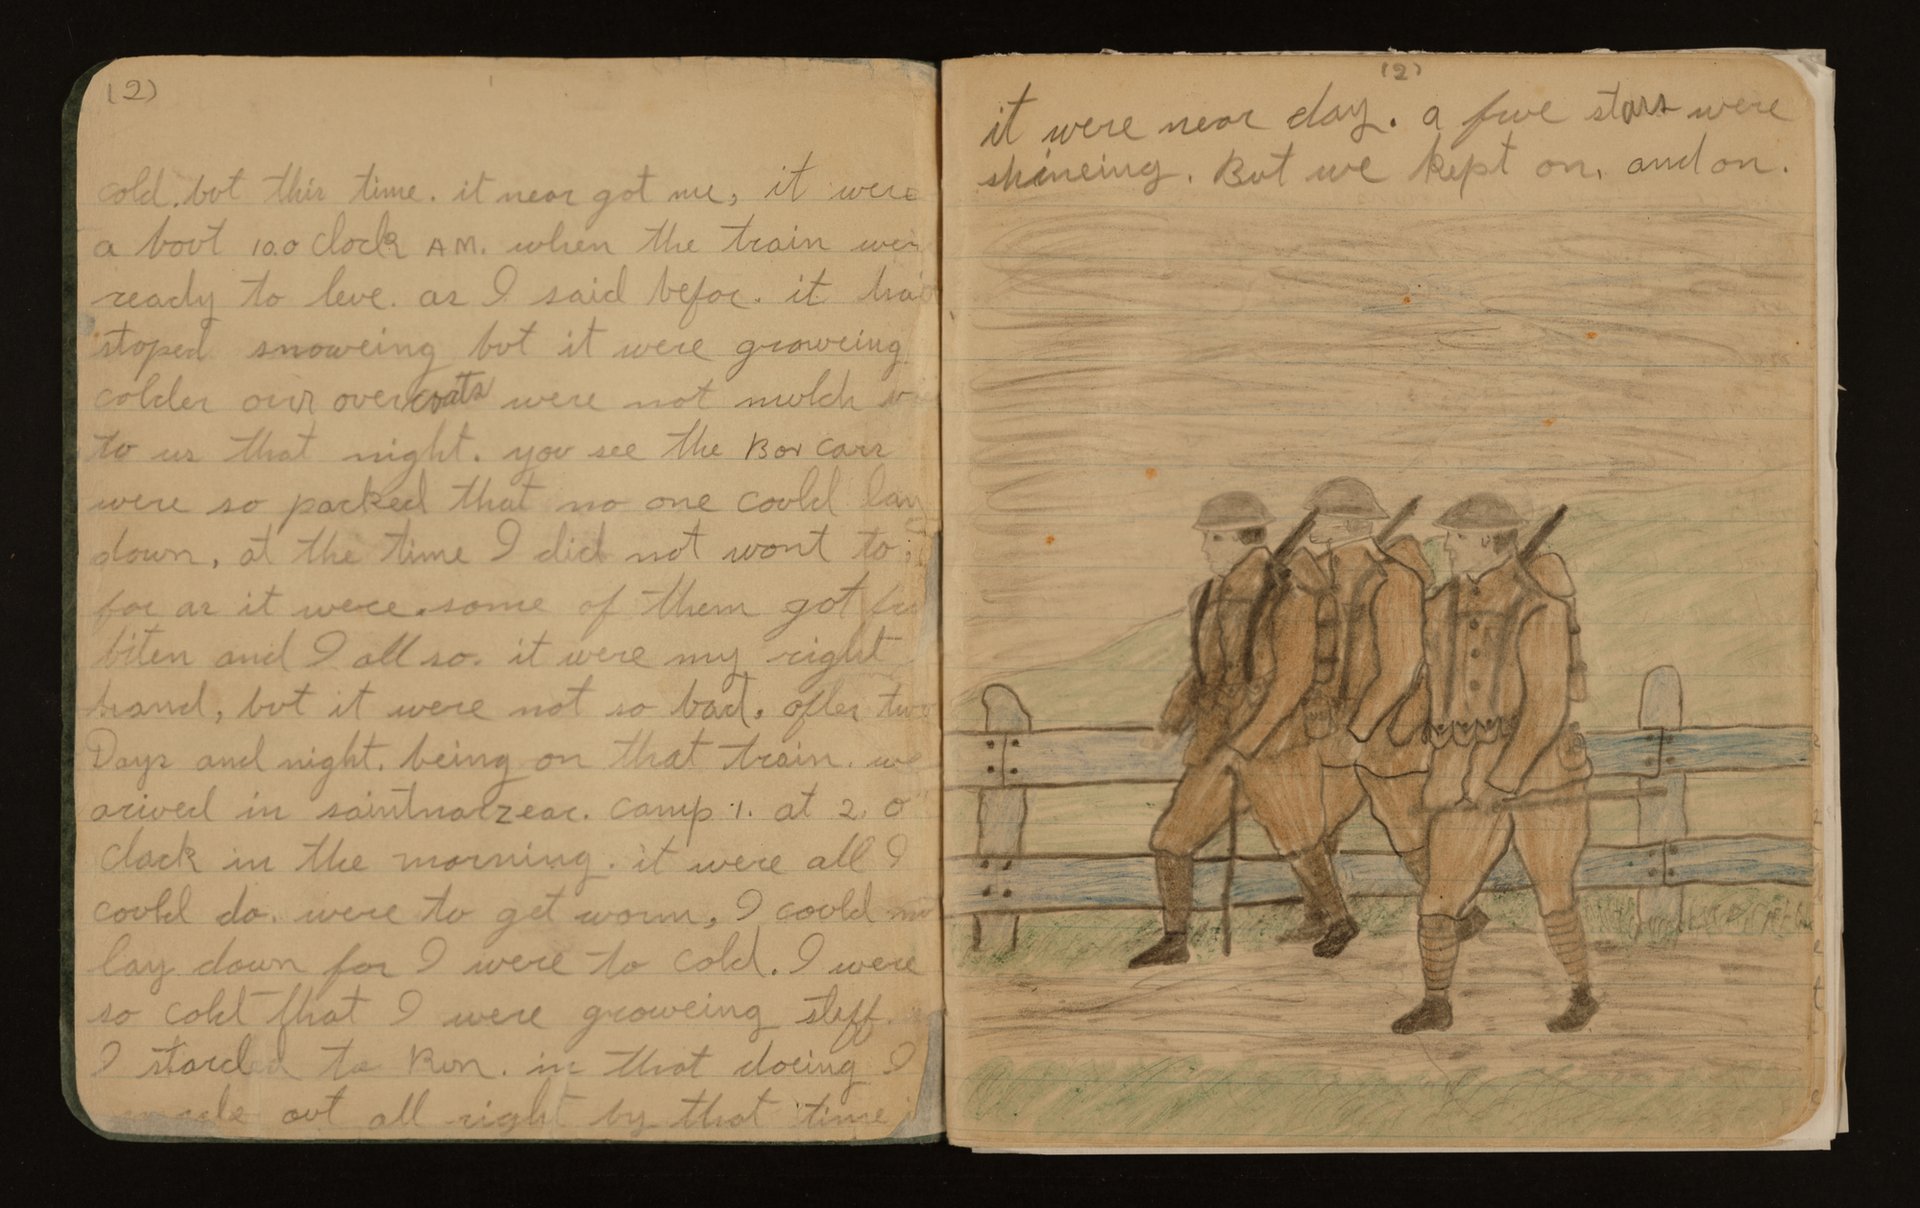 (2)
cold. but this time. it near got me, it were
a bout 10.0 clock AM. when the train wer
ready to leve. as I said befor. it had
stoped snoweing but it were groweing
colder our overcoats were not mulch
to us that night. you see the Box cars
were so packed that no one could lay
down, at the time I did not wont to.
for as it were. some of them got
biten and I all so. it were my right
hand, but it were not so bad. after two
Days and night. being on that train. we
arived in saintnazear. camp 1. at 2. o
clock in the morning. it were all I
could do. were to get worm, I could not
lay down for I were to cold. I were
so cold that I were groweing steff.
I starded to Run. in that doeing I
made out all right by that time
(2)
it were near day. a fwe stars were
shineing. But we kept on, and on.